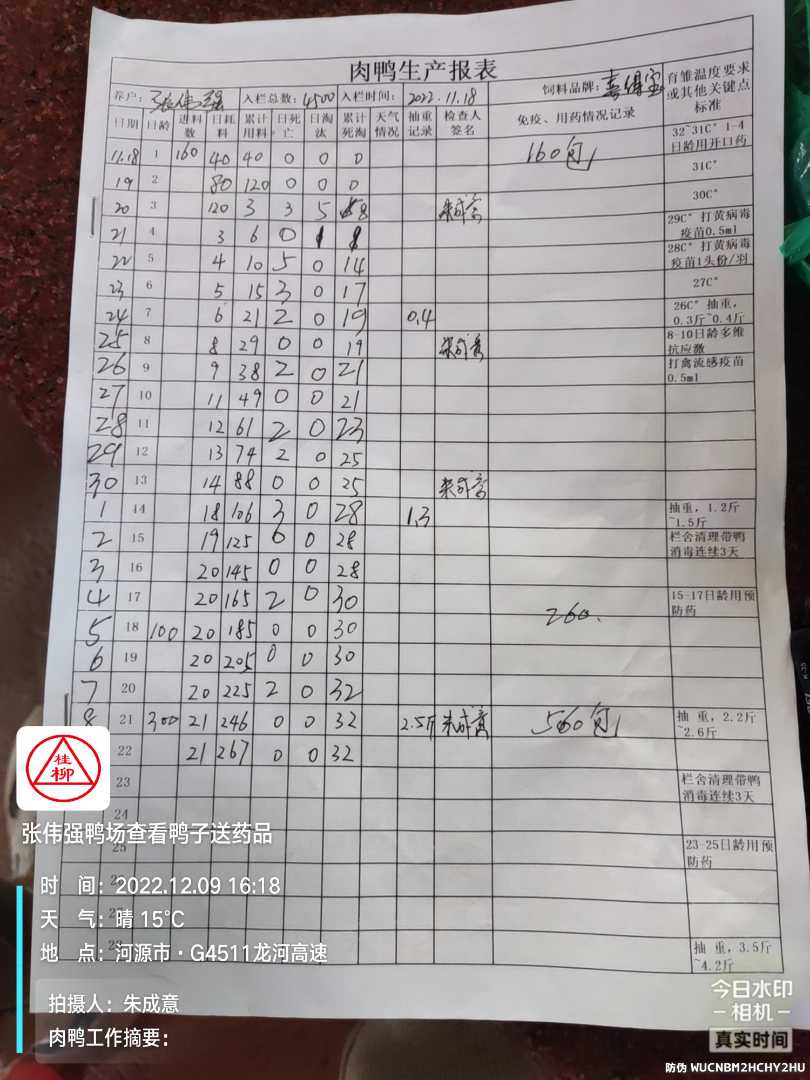 肉鸭生产报表
养户: 张伟强 入栏总数: 4500 入栏时间: 2022.11.18 饲料品牌: 育雏温度要求或其他关键点标准
日期 日龄 进料数 日耗料 累计用料 日死亡 日淘汰 累计死淘 天气情况 抽重记录 检查人签名 免疫、用药情况记录
11.18 1 160 40 40 0 0 0 160包 32~31C° 1-4日龄用开口药
19 2 80 120 0 0 0 31C°
20 3 120 3 3 5 8 朱成意 30C°
21 4 3 6 0 29C° 打黄病毒疫苗0.5ml
22 5 4 10 5 0 14 28C° 打黄病毒疫苗1头份/羽
23 6 5 15 3 0 17 27C°
24 7 6 21 2 0 19 0.4 26C° 抽重,0.3斤~0.4斤
25 8 8 29 0 0 19 朱成意 8-10日龄多维抗应激
26 9 9 38 2 0 21 打禽流感疫苗0.5ml
27 10 11 49 0 0 21
28 11 12 61 2 0 23
29 12 13 74 2 0 25
30 13 14 88 0 0 25 朱成意
1 14 18 106 3 0 28 1.3 抽重,1.2斤~1.5斤
2 15 19 125 0 0 28 栏舍清理带鸭消毒连续3天
3 16 20 145 0 0 28
4 17 20 165 2 0 30 260. 15-17日龄用预防药
5 18 100 20 185 0 0 30
6 19 20 205 0 0 30
7 20 20 225 2 0 32
8 21 300 21 246 0 0 32 2.5斤 朱成意 560包 抽重,2.2斤~2.6斤
22 21 267 0 0 32
23 栏舍清理带鸭消毒连续3天
24
25 23-25日龄用预防药
28 抽重,3.5斤~4.2斤
桂柳
张伟强鸭场查看鸭子送药品
时 间: 2022.12.09 16:18
天 气: 晴 15℃
地 点: 河源市·G4511龙河高速
拍摄人: 朱成意
肉鸭工作摘要:
今日水印
-相机-
真实时间
防伪 WUCNBM2HCHY2HU